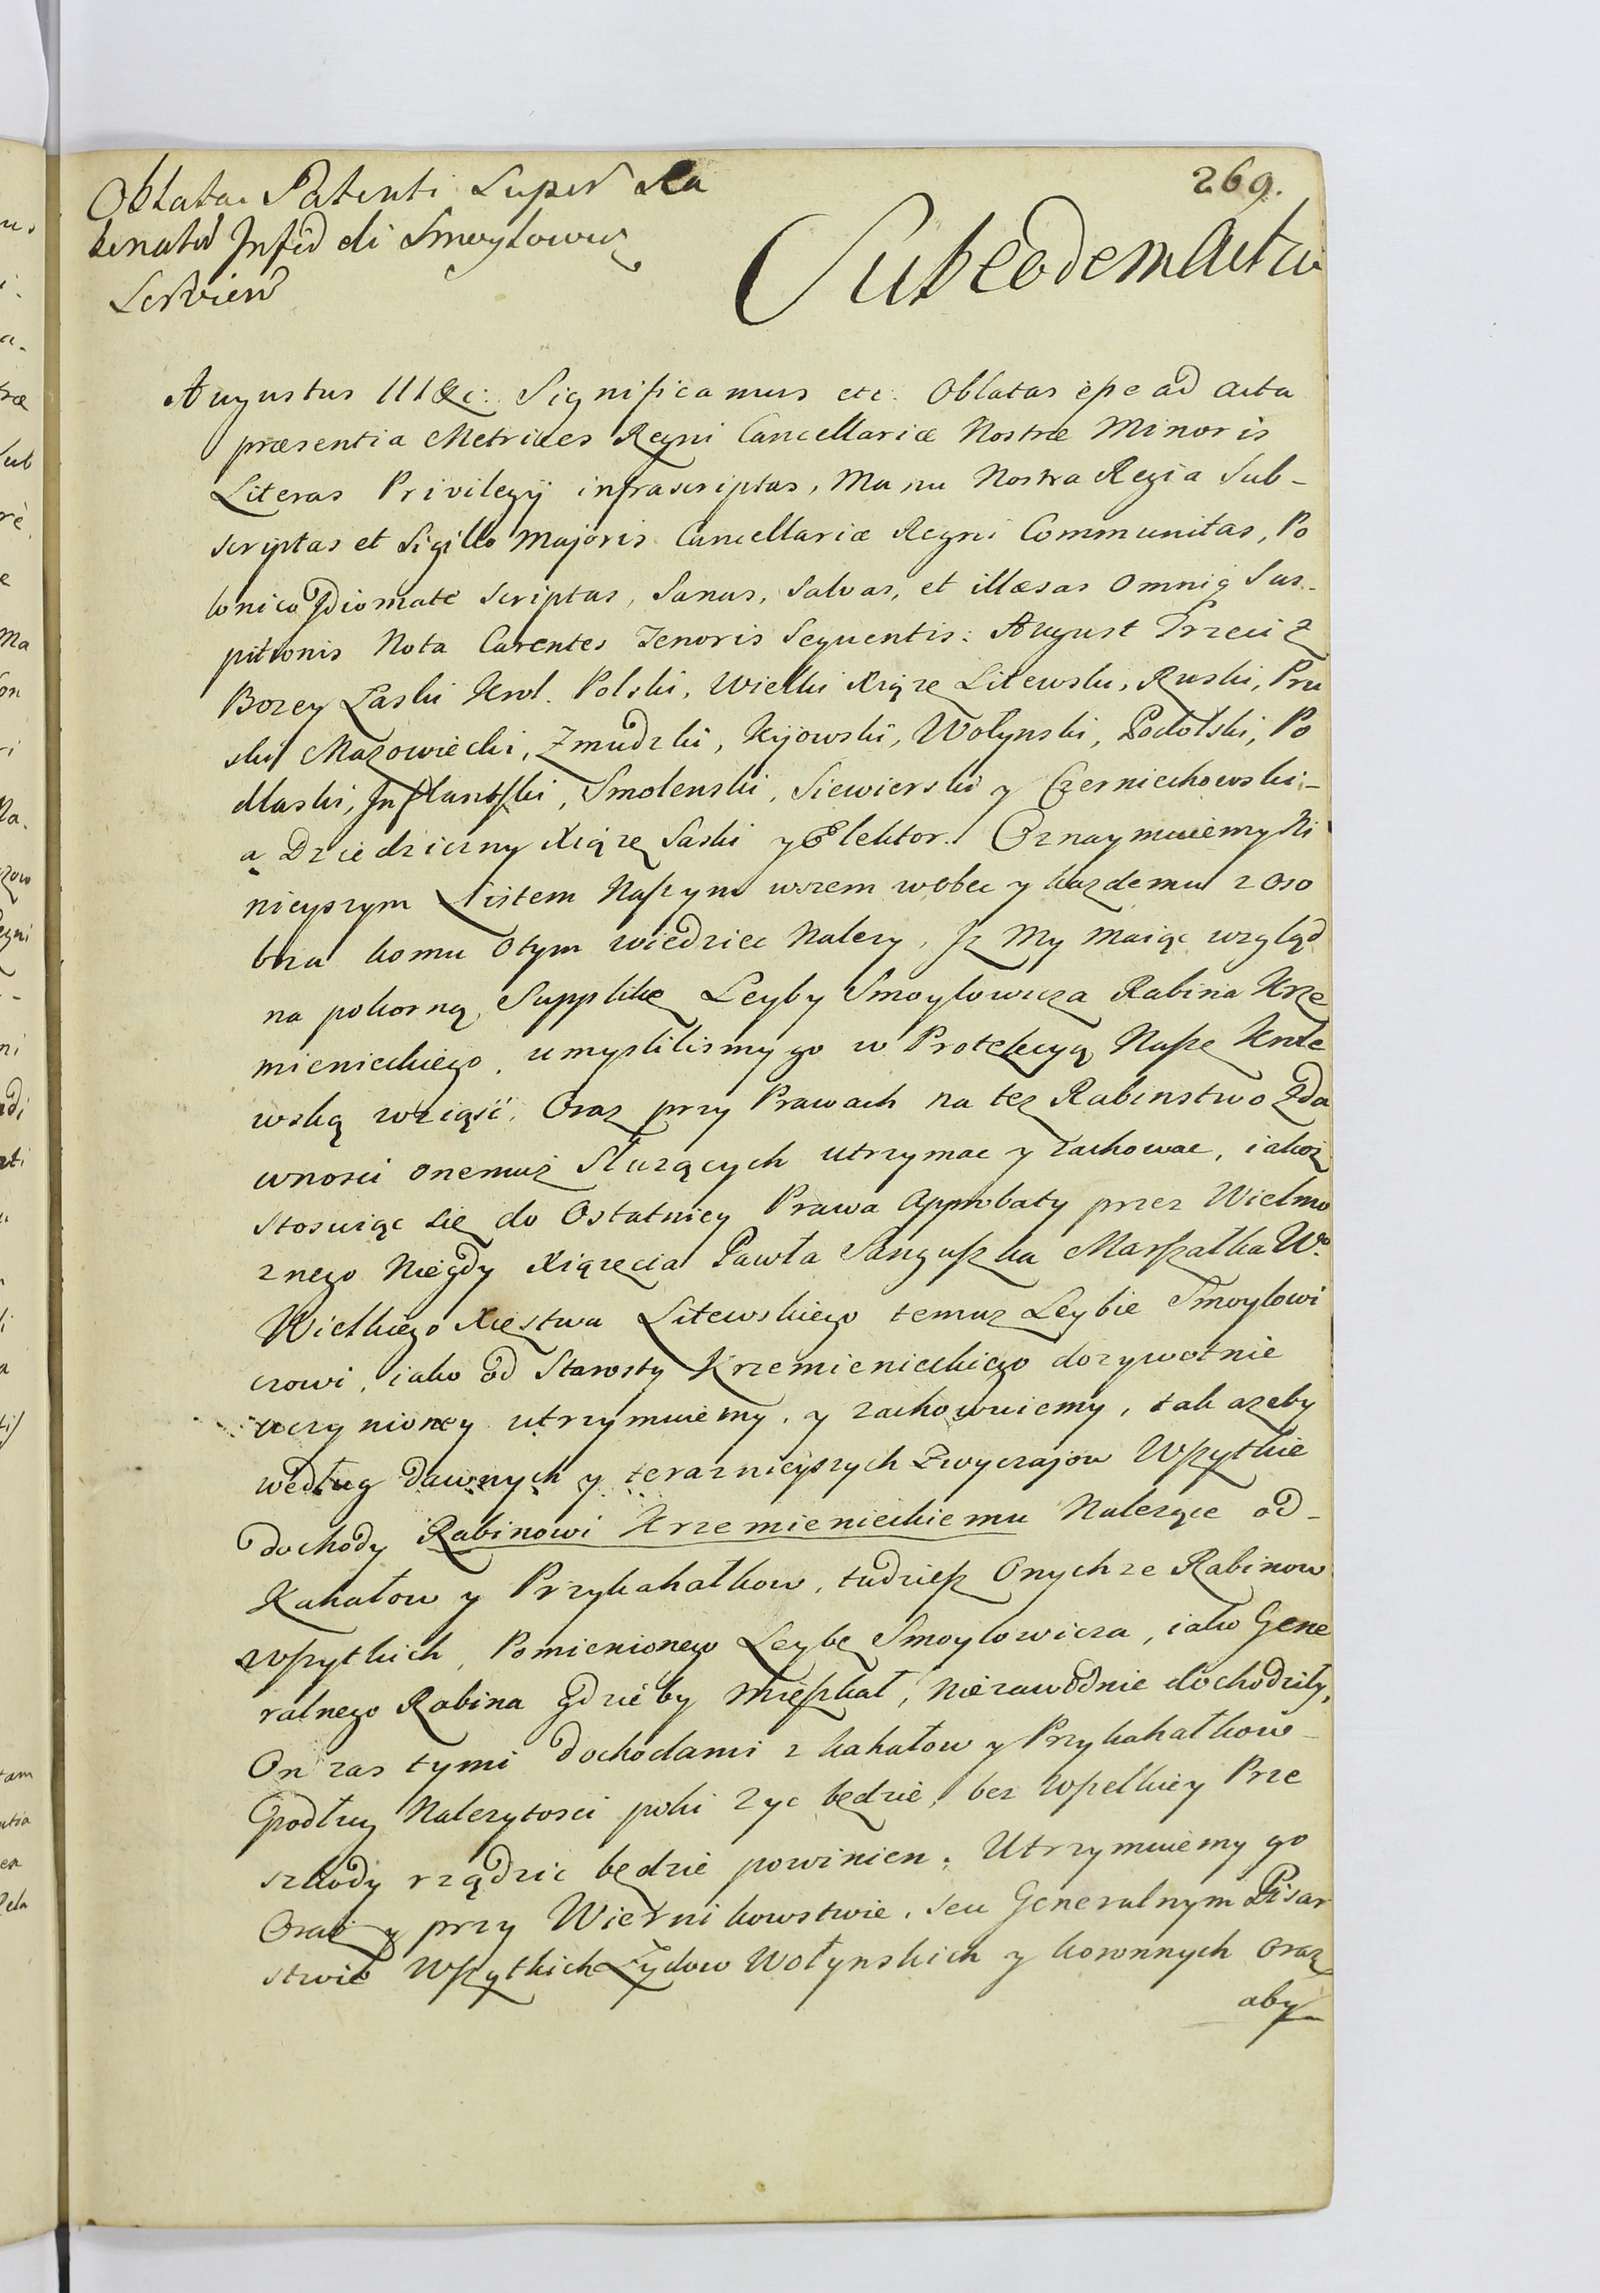 269.
Oblata Patenti Super Ra
binatu Infid di Smoylowicz
Servien
Sub eodem Actu
Augustus III &c: Significamus etc: Oblatas esse ad acta
præsentia Metrices Regni Cancellariæ Nostræ Minoris
Literas Privilegij infrascriptas, Manu Nostra Regia Sub-
scriptas et Sigillo Majoris Cancellariæ Regni Communitas, Po
lonico Idiomate scriptas, Sanas, Salvas, et illæsas omniq Sus-
pitionis Nota Carentes Tenoris Sequentis: August Trzeci z
Bozey Łaski Krol Polski, Wielki Xiąze Litewski, Ruski, Pru
ski Mazowiecki, Zmudzki, Kijowski, Wołynski, Podolski, Po
dlaski, Inflantski, Smolenski, Siewierski y Czerniechowski-
a Dziedziczny Xiąze Saski y Elektor. Oznaymuiemy Ni
nieyszym Listem Naszym wszem wobec y kazdemu z oso
bna komu o tym wiedziec Nalezy, Jz My maiąc wzgląd
na pokorną Supplikę Leyby Smoylowicza Rabina Krze
mienieckiego, umyslilismy go w Protekcyą Naszę Krole
wską wziąść, Oraz przy Prawach na tez Rabinstwo Zda
wnosci onemuz Słuzących utrzymac y zachowac, iakoz
stosuiąc się do Ostatniey Prawa Approbaty przez Wielmo
znego Niegdy Xiązecia Pawła Sanguszka Marszałka Wo
Wielkiego Xięstwa Litewskiego temuz Leybie Smoylowi
czowi, iako od Starosty Krzemienieckiego dozywotnie
uczynioney utrzymuiemy, y zachowuiemy, tak azeby
według dawnych y teraznieyszych Zwyczajow Wszytkie
dochody Rabinowi Krzemienieckiemu Nalezące od-
Kahałow y Przykahałkow, tudziesz Onychze Rabinow
wszytkich, Pomienionego Leybę Smoylowicza, iako Gene
ralnego Rabina gdzieby mieszkał, niezawodnie dochodziły,
On zas tymi dochodami z kahałow y Przykahałkow-
podług Nalezytosci poki zyc będzie, bez wszelkiey Prze
szkody rządzic będzie powinien. Utrzymuiemy go
Oraz y przy Wiernikowstwie, seu Generalnym Pisar
stwie Wszytkich Zydow Wołynskich y koronnych oraz
aby